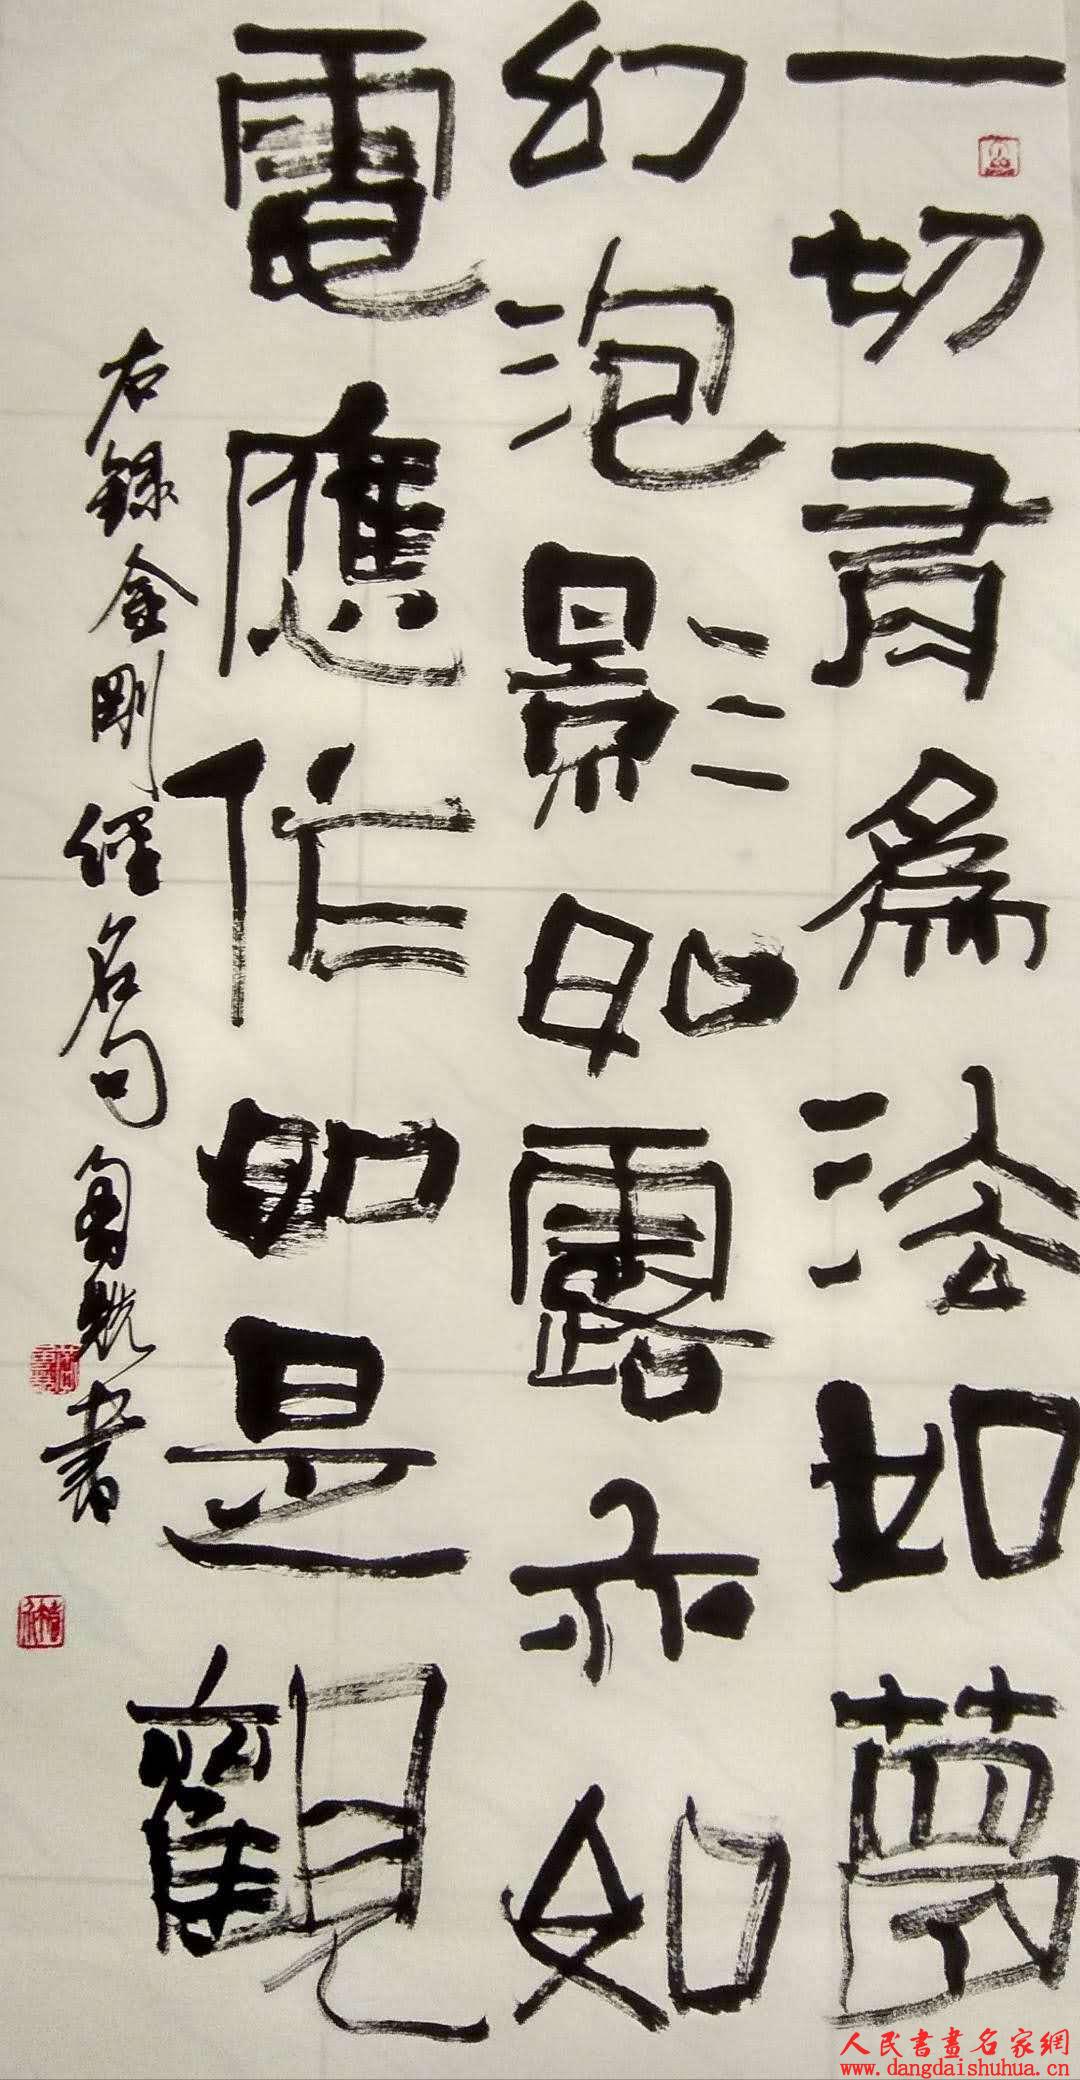 一切有為法如夢
幻泡影如露亦如
電應作如是觀
右錄金剛經名句
書
人民書畫名家網
www.dangdaishuhua.cn